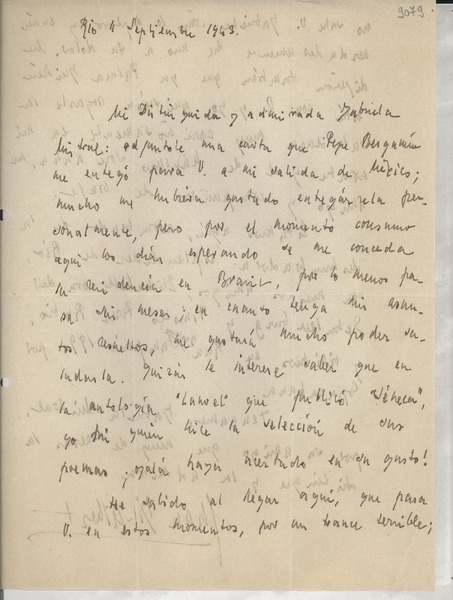 9079
Rio 11 Septiembre 1943.
Mi Distinguida y admirada Gabriela
Mistral: adjúntole una carta que Pepe Bergamín
me entregó para V. a mi salida de México;
mucho me hubiera gustado entregársela per-
sonalmente, pero por el momento consumo
aquí los días esperando se me conceda
la residencia en Brasil, por lo menos pa-
ra seis meses: en cuanto tenga mis asun-
tos resueltos, me gustará mucho poder sa-
ludarla. Quizás le interese saber que en
la antología "Laurel" que publicó "Séneca",
yo fuí quien hice la selección de sus
poemas ¡ojalá haya acertado en su gusto!
He sabido al llegar aquí, que pasa
V. en estos momentos, por un trance terrible;